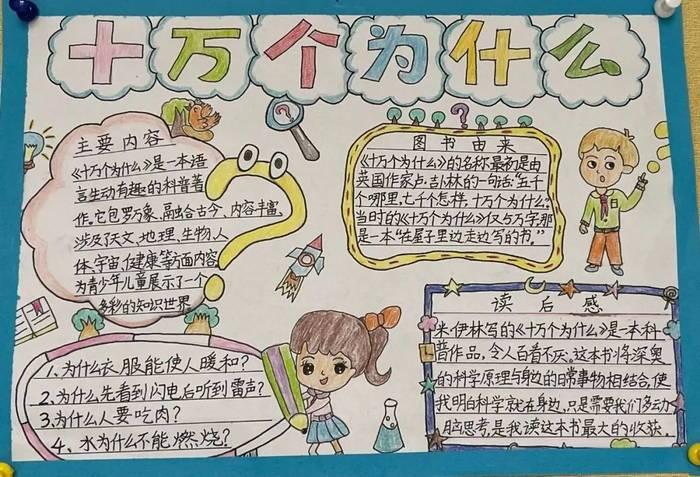 十万个为什么
主要内容
《十万个为什么》是一本语
言生动有趣的科普著
作。它包罗万象、融会古今、内容丰富、
涉及了天文、地理、生物、人
体、宇宙、健康等方面内容
为青少年儿童展示了一个
多彩的知识世界
图书由来
《十万个为什么》的名称最初是由
英国作家卢·吉卜林的一句话:"五千
个哪里,七千个怎样,十万个为什么。"
当时的《十万个为什么》仅5万字那
是一本"在屋子里边走边写的书。"
1、为什么衣服能使人暖和?
2、为什么先看到闪电后听到雷声?
3、为什么人要吃肉?
4、水为什么不能燃烧?
读后感
米·伊林写的《十万个为什么》是一本科
普作品,令人百看不厌。这本书将深奥
的科学原理与身边的日常事物相结合,使
我明白科学就在身边,只是需要我们多动
脑思考,是我读这本书最大的收获。